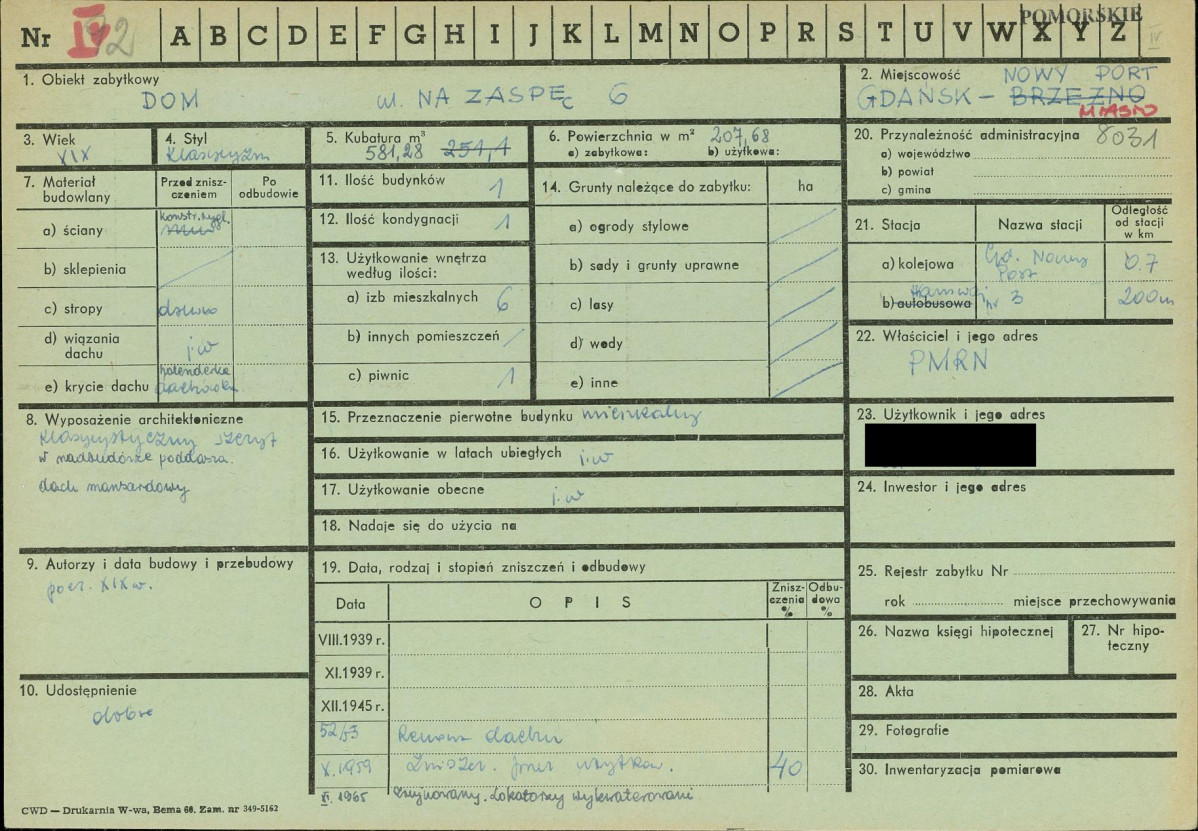 POMORSKIE
Nr IV 92 A B C D E F G H I J K L M N O P R S T U V W X Y Z IV
1. Obiekt zabytkowy
DOM ul. NA ZASPĘ 6
2. Miejscowość NOWY PORT
GDAŃSK – BRZEŹNO
MIASTO
3. Wiek
XIX
4. Styl
Klasycyzm
5. Kubatura m³
581,28 251,1
6. Powierzchnia w m² 207,68
a) zabytkowa: b) użytkowa:
20. Przynależność administracyjna 8031
a) województwo
b) powiat
c) gmina
7. Materiał budowlany
Przed zniszczeniem
Po odbudowie
a) ściany konstr. mur
b) sklepienia
c) stropy drewno
d) wiązania dachu j.w
e) krycie dachu holenderka dachówka
11. Ilość budynków 1
12. Ilość kondygnacji 1
13. Użytkowanie wnętrza według ilości:
a) izb mieszkalnych 6
b) innych pomieszczeń /
c) piwnic 1
14. Grunty należące do zabytku: ha
a) ogrody stylowe
b) sady i grunty uprawne
c) lasy
d) wody
e) inne
21. Stacja Nazwa stacji Odległość od stacji w km
a) kolejowa Gd. Nowy Port 0.7
b) autobusowa tramwaj nr 3 200m
22. Właściciel i jego adres
PMRN
8. Wyposażenie architektoniczne
klasycystyczny szczyt
w nadbudówce poddasza.
dach mansardowy
15. Przeznaczenie pierwotne budynku mieszkalny
16. Użytkowanie w latach ubiegłych j.w
17. Użytkowanie obecne j.w
18. Nadaje się do użycia na
23. Użytkownik i jego adres
24. Inwestor i jego adres
9. Autorzy i data budowy i przebudowy
pocz. XIX w.
19. Data, rodzaj i stopień zniszczeń i odbudowy
Data OPIS Zniszczenia % Odbudowa %
VIII.1939 r.
XI.1939 r.
XII.1945 r.
52/53 Remont dachu
X.1959 Zniszcz. przez użytkow. 40
VI. 1965 zrujnowany. Lokatorzy wykwaterowani
25. Rejestr zabytku Nr
rok miejsce przechowywania
26. Nazwa księgi hipotecznej
27. Nr hipoteczny
10. Udostępnienie
dobre
28. Akta
29. Fotografie
30. Inwentaryzacja pomiarowa
CWD — Drukarnia W-wa, Bema 60. Zam. nr 349-5162